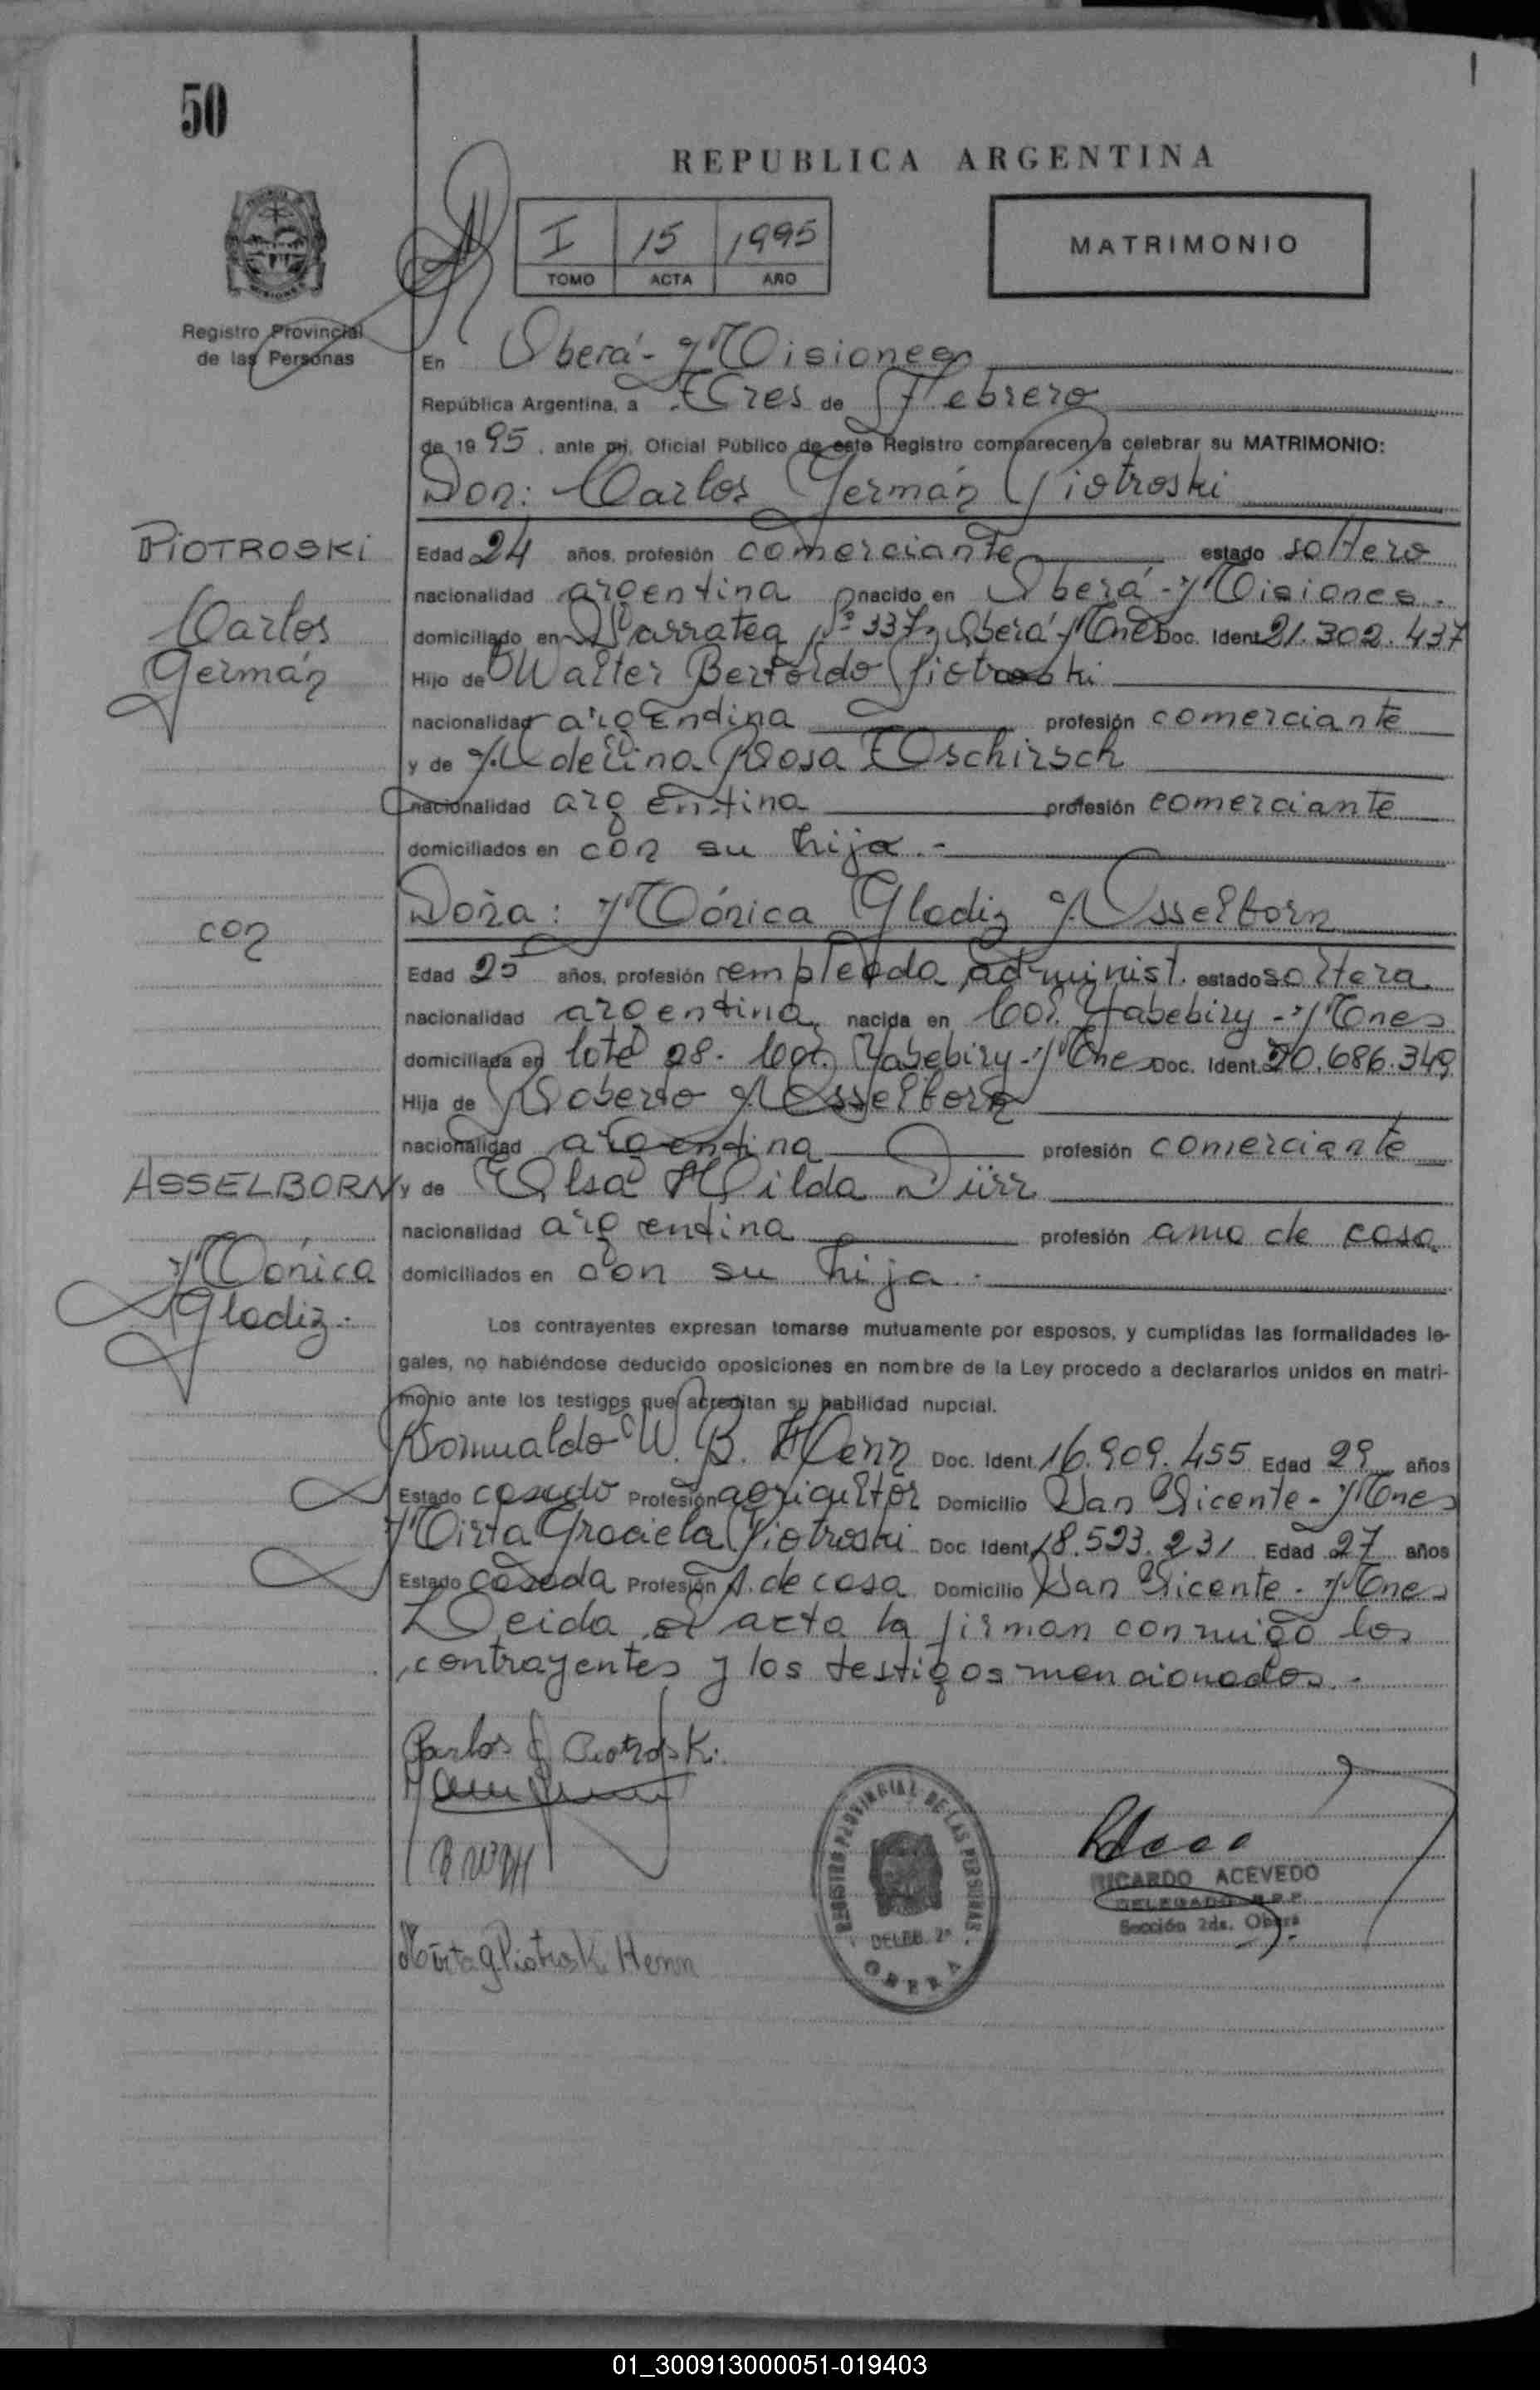 50
REPUBLICA ARGENTINA
I 15 1995
TOMO ACTA AÑO
MATRIMONIO
Registro Provincial
de las Personas
En Oberá - Misiones
República Argentina, a Tres de Febrero
de 1995, ante mi, Oficial Público de este Registro comparecen a celebrar su MATRIMONIO:
Don: Carlos Germán Piotroski
PIOTROSKI
Carlos
Germán
Edad 24 años, profesión comerciante estado soltero
nacionalidad argentina nacido en Oberá - Misiones.
domiciliado en Larratea Nº 337, Oberá Mnes Doc. Ident. 21.302.437
Hijo de Walter Bertoldo Piotroski
nacionalidad argentina profesión comerciante
y de Adelina Rosa Oschirsch
nacionalidad argentina profesión comerciante
domiciliados en con su hija.-
con
Doña: Mónica Gladiz Asselborn
Edad 25 años, profesión empleada administ. estado soltera
nacionalidad argentina, nacida en Col. Yabebiry - Mnes
domiciliada en lote 28. Col. Yabebiry - Mnes Doc. Ident. 20.686.349
Hija de Roberto Asselborn
nacionalidad argentina profesión comerciante
ASSELBORN
Mónica
Gladiz.
y de Elsa Hilda Dürr
nacionalidad argentina profesión ama de casa
domiciliados en con su hija.
Los contrayentes expresan tomarse mutuamente por esposos, y cumplidas las formalidades le-
gales, no habiéndose deducido oposiciones en nombre de la Ley procedo a declararlos unidos en matri-
monio ante los testigos que acreditan su habilidad nupcial.
Romualdo W. B. Henn Doc. Ident. 16.909.455 Edad 29 años
Estado casado Profesión agricultor Domicilio San Vicente - Mnes
Mirta Graciela Piotroski Doc. Ident. 18.523.231 Edad 27 años
Estado casada Profesión A. de casa Domicilio San Vicente - Mnes
Leida el acta la firman conmigo los
contrayentes y los testigos mencionados.-
Carlos G Piotroski
Mirta G Piotroski Henn
REGISTRO PROVINCIAL DE LAS PERSONAS
DELEG. 2ª
OBERA
RICARDO ACEVEDO
DELEGADO R.P.P.
Sección 2da. Oberá
01_300913000051-019403